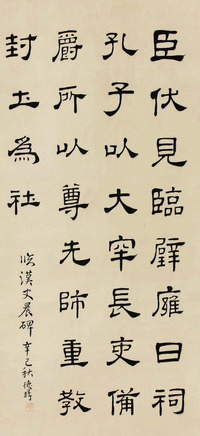 臣伏見臨璧廱日祠
孔子以大牢長吏備
爵所以尊先師重教
封土為社
臨漢史晨碑 辛巳秋